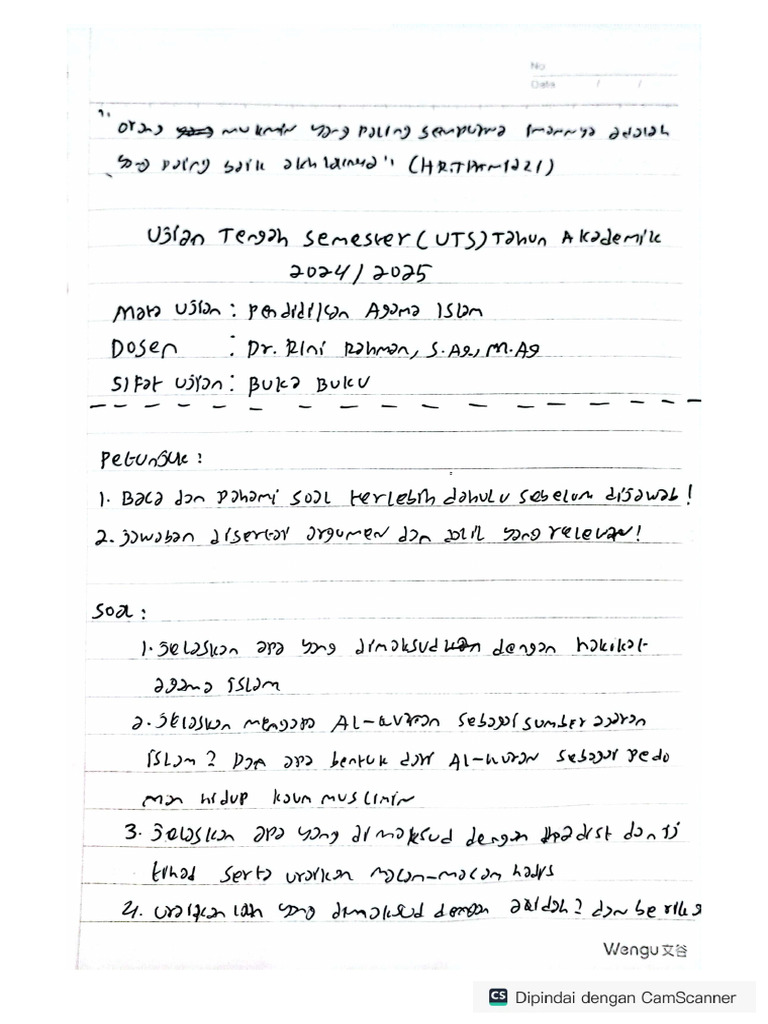 No
Date / /
"Orang yang mukmin yang paling sempurna imannya adalah
yang paling baik akhlaknya" (HR.
Ujian Tengah Semester (UTS) Tahun Akademik
2024/2025
Mata Ujian : Pendidikan Agama Islam
Dosen : Dr. Rini Rahman, S.Ag, M.Ag
Sifat Ujian : Buka Buku
Petunjuk :
1. Baca dan pahami soal terlebih dahulu sebelum dijawab!
2. Jawaban disertai argumen dan dalil yang relevan!
Soal :
1. Jelaskan apa yang dimaksudkan dengan hakikat
agama islam
2. Jelaskan mengapa AL-Quran sebagai sumber ajaran
islam? Dan apa bentuk dari AL-Quran sebagai pedo
man hidup kaum muslimin
3. Jelaskan apa yang dimaksud dengan hadist dan ij
tihad serta uraikan macam-macam hadis
4. Uraikan lah yang dimaksud dengan aqidah? dan berika
Wengu 文谷
CS Dipindai dengan CamScanner